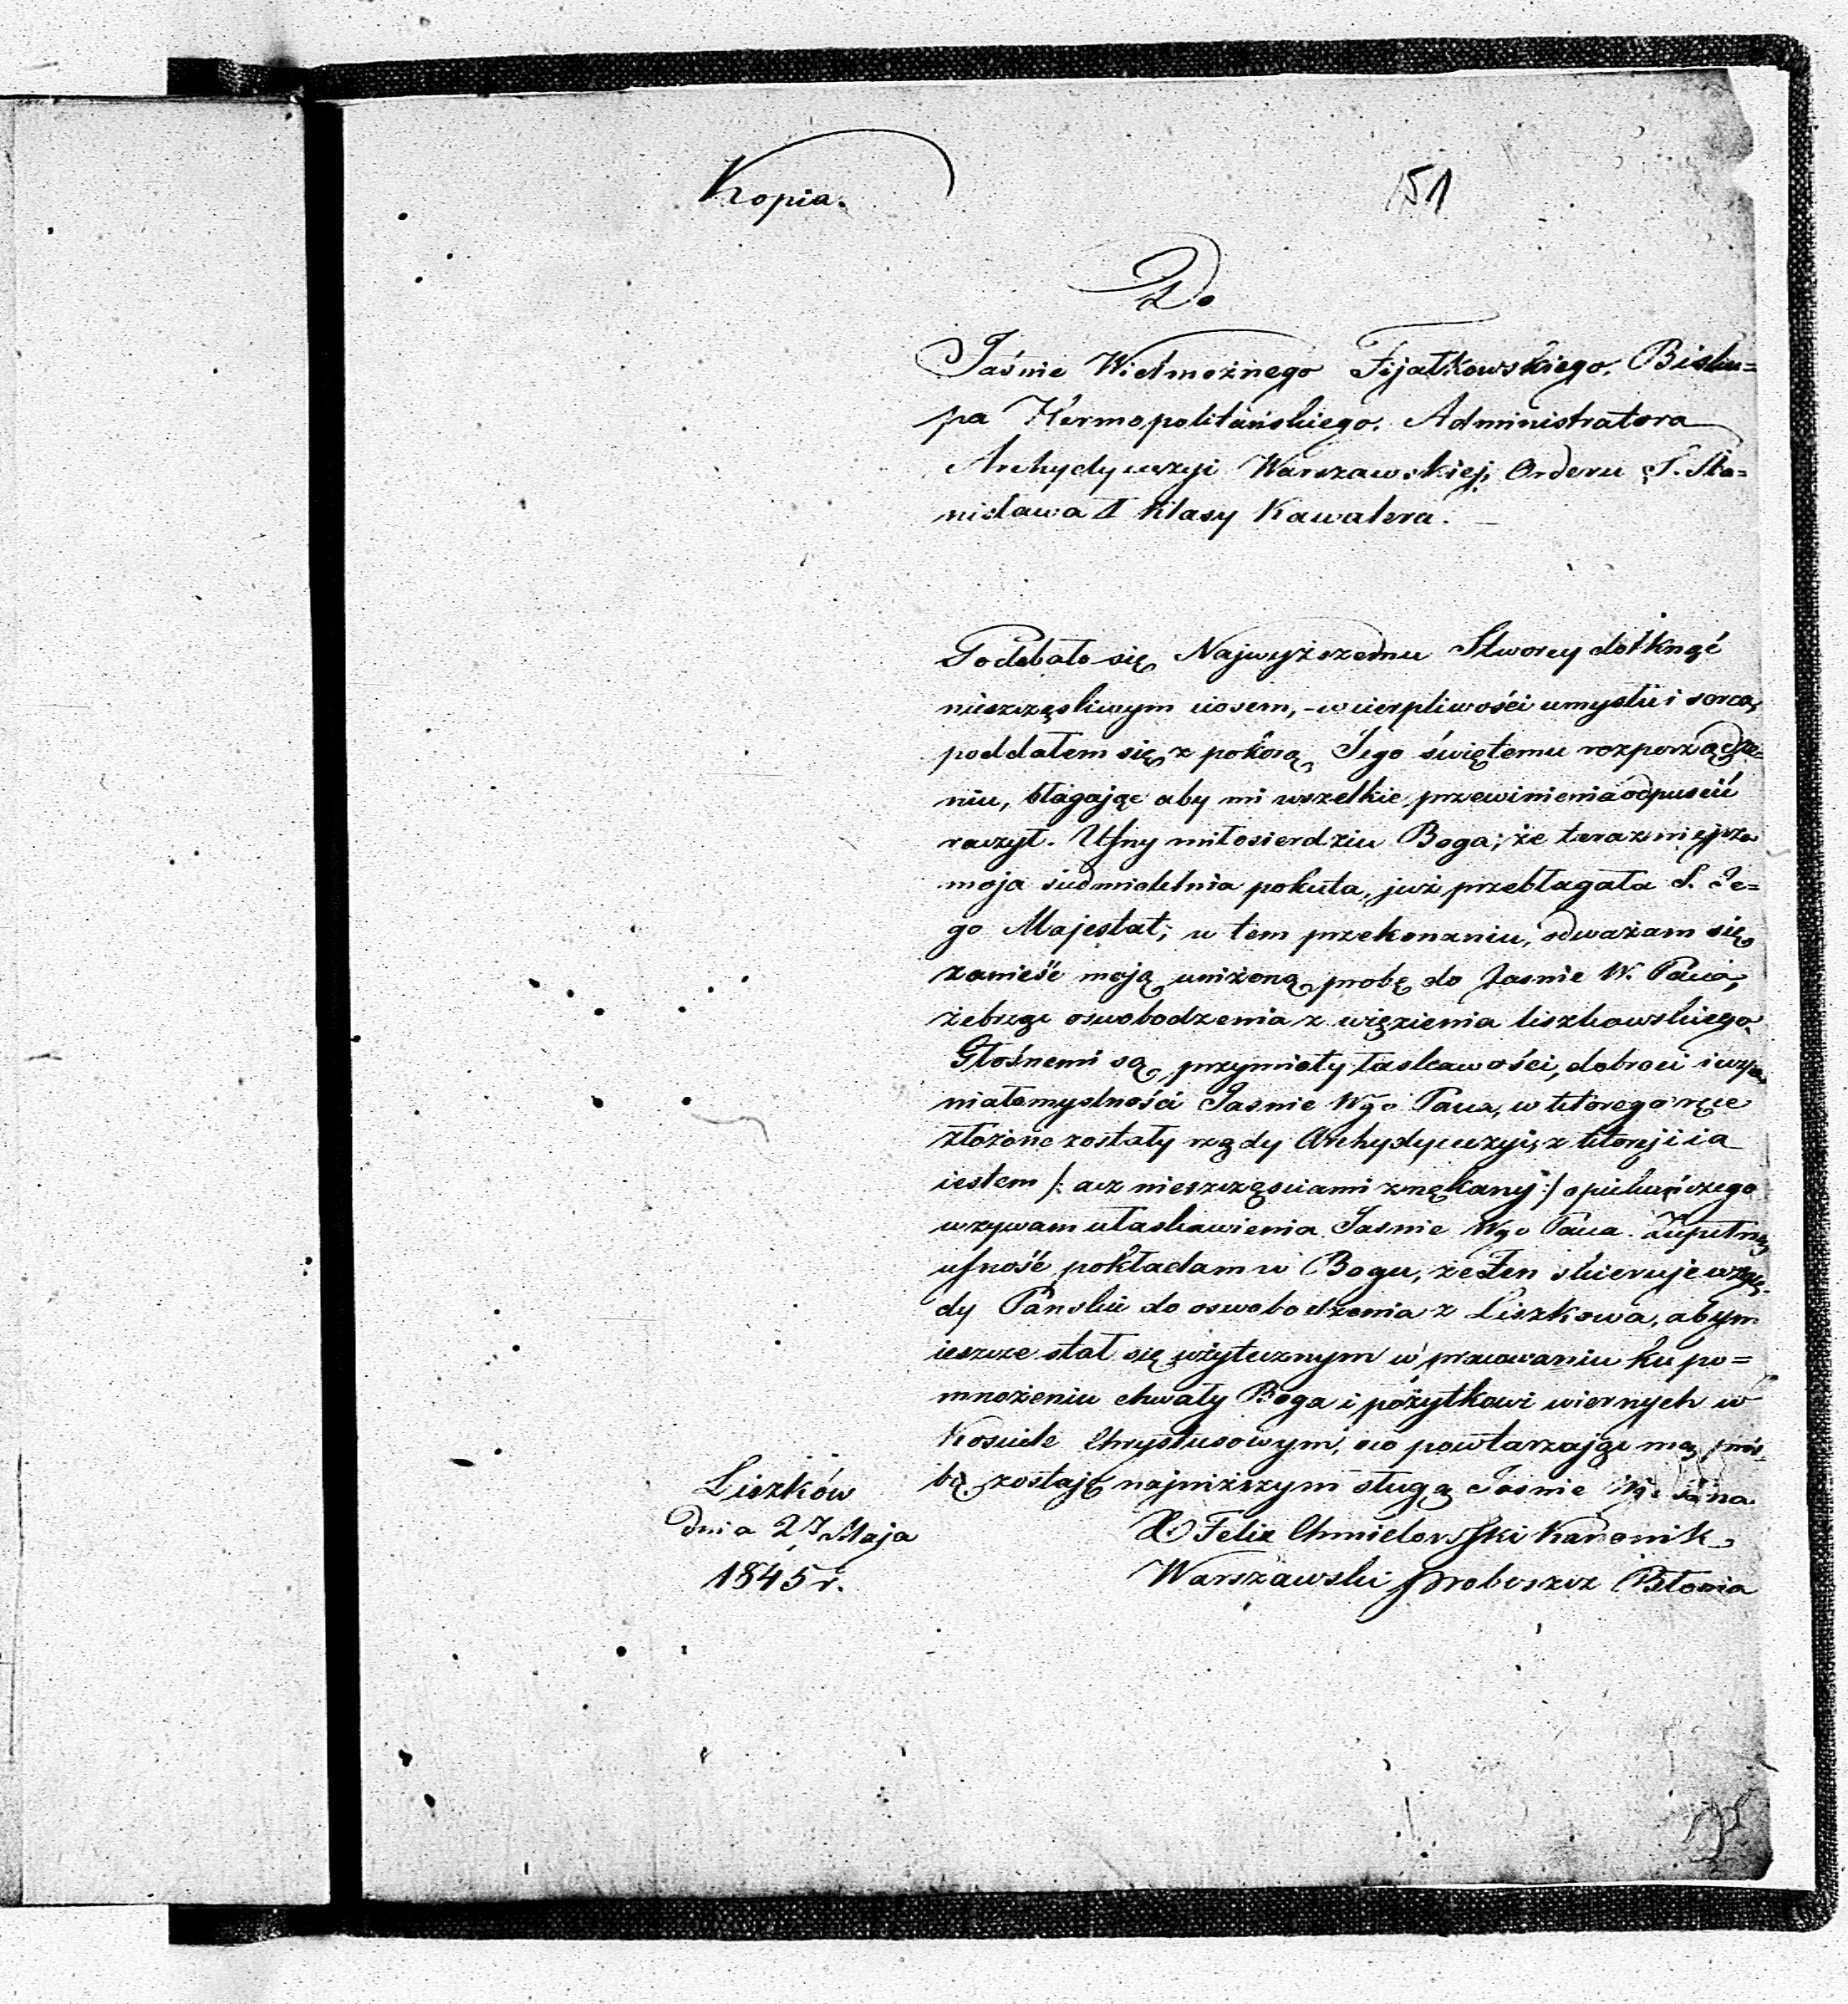 Kopia.
151
Do
Jaśnie Wielmożnego Fijałkowskiego, Bisku=
pa Hermopolitańskiego, Administratora
Archydyecezyi Warszawskiej, Orderu S. Sta=
nisława I Klasy Kawalera.
Podobało się Najwyższemu Stworcy dotknąć
nieszczęśliwym ciosem, - w cierpliwości umysłu i serca,
poddałem się z pokorą Jego świętemu rozporządze=
niu, błagając aby mi wszelkie przewinienia odpuścić
raczył. Ufny miłosierdziu Boga; że teraźniejsza
moja siedmioletnia pokuta, już przebłagała S. Je=
go Majestat; w tem przekonaniu, odważam się
zanieść moją uniżoną probę do Jasnie W. Pana,
żebrząc oswobodzenia z więzienia liszkowskiego.
Głośnemi są przymioty łaskawości, dobroci i wspa
niałomyslności Jasnie Wgo Pana, w którego ręce
złożone zostały rządy Archydyecezyi, z ktorej i ia
iestem /: acz nieszczęsciami znękany :/ opiekuńczego
wzywam ułaskawienia Jasnie Wgo Pana. Zupełną
ufność pokładam w Bogu, że Ten skieruje wzglę=
dy Pańskie do oswobodzenia z Liszkowa, abym
ieszcze stał się użytecznym w pracowaniu ku po=
mnożeniu chwały Boga i pożytkowi wiernych w
Kosciele Chrystusowym, co powtarzając mą proś=
bę zostaję najniższym sługą Jasnie Wgo Pana
Liszków
dnia 27 Maja
1845 r.
X Felix Chmielewski Kanonik
Warszawski Proboszcz Błonia